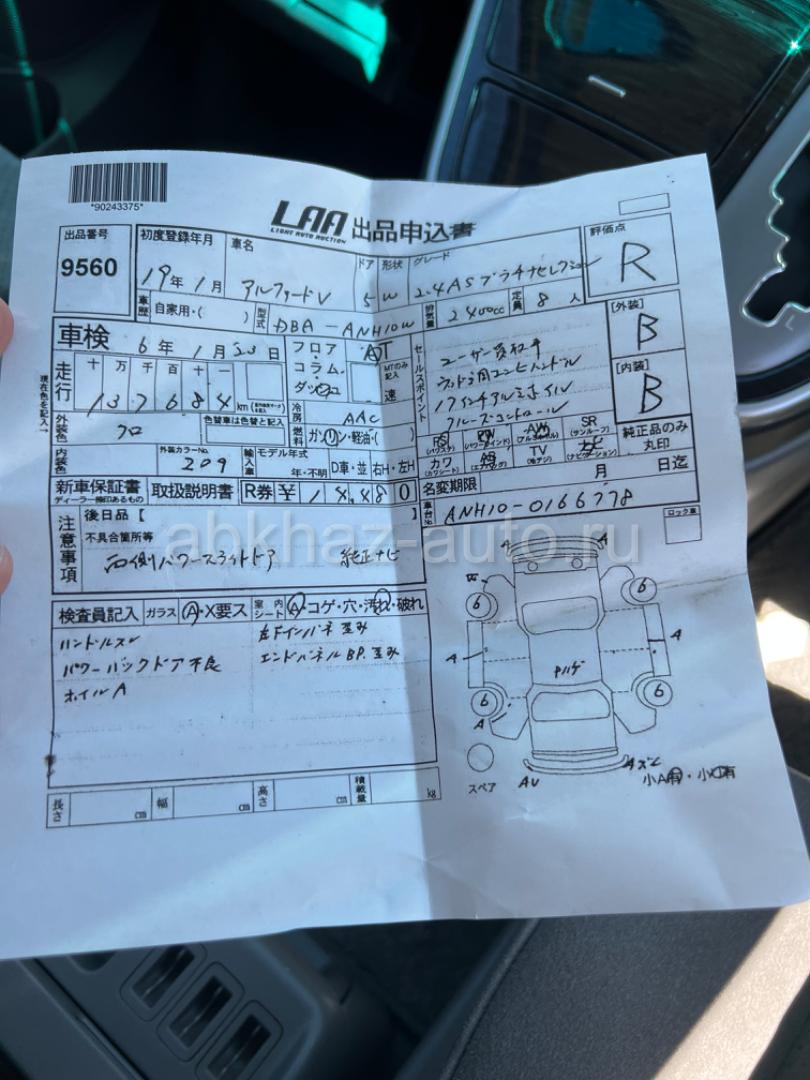 *90243375*
LAA 出品申込書
LIGHT AUTO AUCTION
出品番号
9560
初度登録年月
19年1月
車名
アルファードV
ドア
5
形状
W
グレード
2.4AS プラチナセレクション
評価点
R
車歴
自家用・( )
型式
DBA-ANH10W
排気量
2400cc
定員 8 人
車検
6年1月23日
フロア・
コラム・
AT
MTのみ記入
速
セールスポイント
ユーザー買取車
ウッド調コンビハンドル
17インチアルミホイル
クルーズコントロール
[外装]
B
[内装]
B
現在色を記入→
走行
十 万 千 百 十 一
137684 km
冷房
AAC
外装色
クロ
色替車は色替と記入
燃料
ガソリン・軽油・( )
SR
(サンルーフ)
TV
(地デジ)
純正品のみ
丸印
内装色
外装カラーNo.
209
輸入車
モデル年式
年・不明
D車・並
右H・左H
新車保証書
取扱説明書
R券 ¥ 14480
名変期限
月 日迄
車台No.
ANH10-0166778
注意事項
後日品【 】
不具合箇所等
両側パワースライドドア 純正ナビ
ロック車
検査員記入
ガラス
A・X要ス
室内
シート
A・コゲ・穴・汚れ・破れ
ハンドルスレ
左Fインパネ歪み
パワーバックドア不良
エンドパネルBP.歪み
ホイルA
A
A
6
6
A
A
6
6
A
スペア
AU
小A有・小U有
長さ cm
幅 cm
高さ cm
積載量 kg
abkhaz-auto.ru